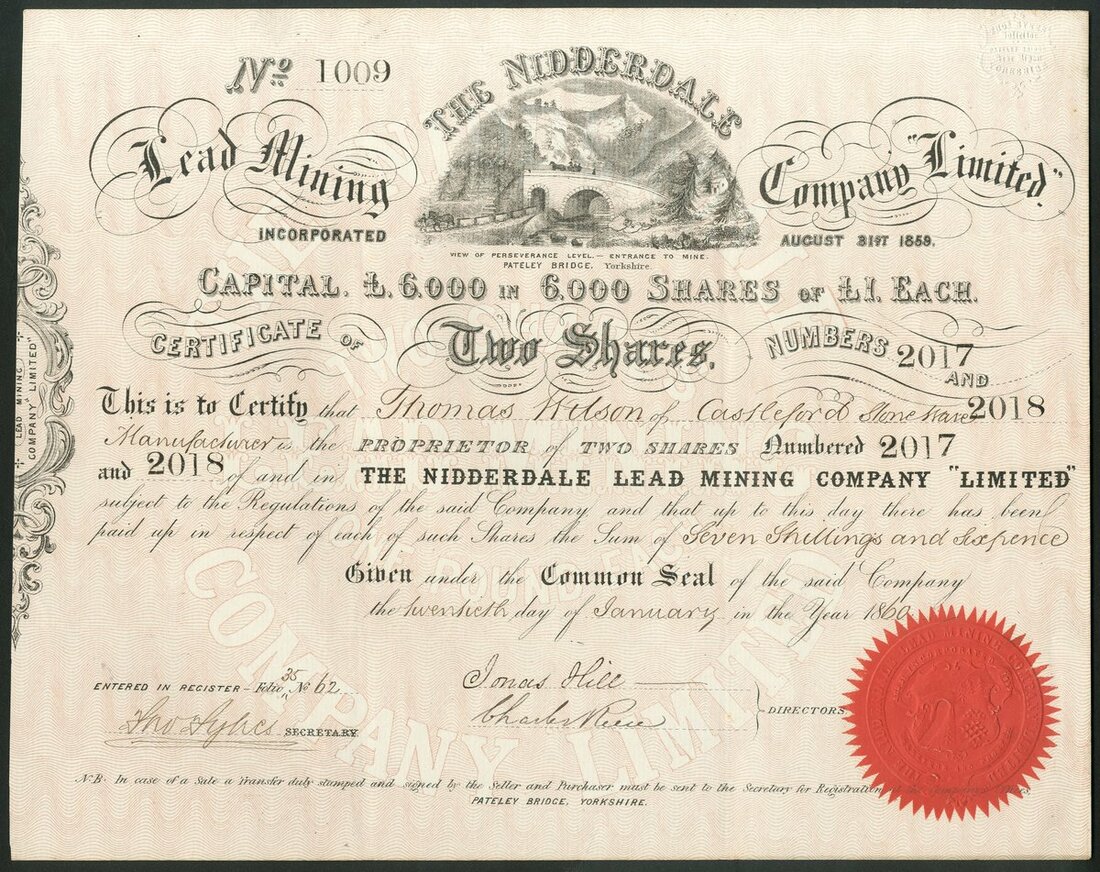 No 1009
THE NIDDERDALE
Lead Mining Company "Limited,"
INCORPORATED AUGUST 31ST 1859.
VIEW OF PERSEVERANCE LEVEL.— ENTRANCE TO MINE.
PATELEY BRIDGE, Yorkshire.
CAPITAL. £.6.000 IN 6.000 SHARES OF £1. EACH.
CERTIFICATE OF Two Shares. NUMBERS 2017
AND
This is to Certify that Thomas Wilson of Castleford Stone Ware 2018
Manufacturer is the PROPRIETOR of TWO SHARES Numbered 2017
and 2018 of and in THE NIDDERDALE LEAD MINING COMPANY "LIMITED"
subject to the Regulations of the said Company and that up to this day there has been
paid up in respect of each of such Shares the Sum of Seven Shillings and Sixpence
Given under the Common Seal of the said Company
the twentieth day of January in the Year 1860
ENTERED IN REGISTER – Folio 35 No 62
Jonas Hill
Charles Reese
DIRECTORS
Jno Sykes SECRETARY
N.B. In case of a Sale a Transfer duly stamped and signed by the Seller and Purchaser must be sent to the Secretary for Registration
PATELEY BRIDGE, YORKSHIRE.
LEAD MINING
COMPANY "LIMITED"
COMPANY LIMITED